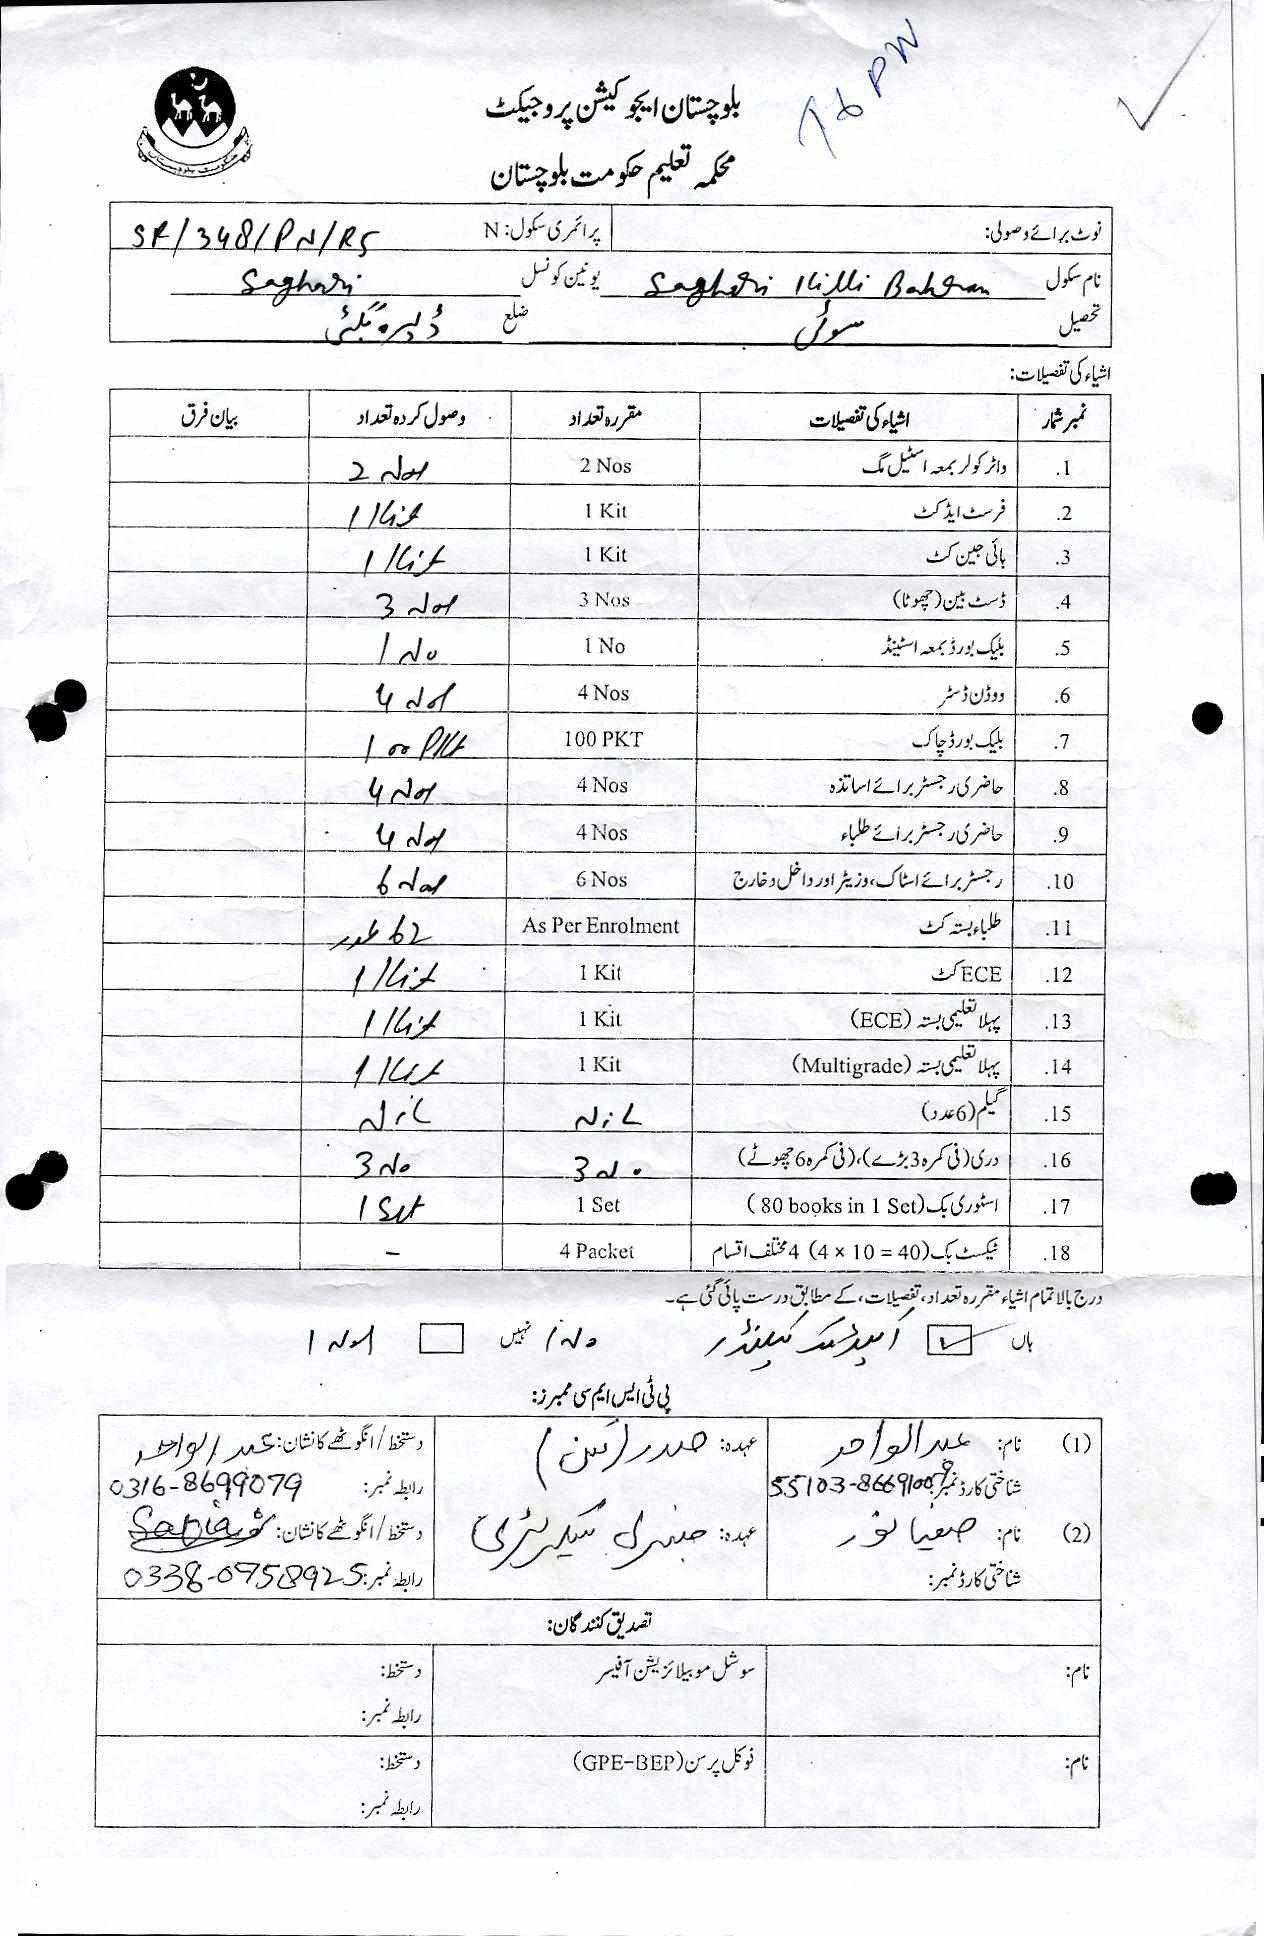 بلوچستان ایجوکیشن پروجیکٹ
محکمہ تعلیم حکومت بلوچستان
حکومت بلوچستان
نوٹ برائے وصولی: پرائمری سکول: N SF/348/PN/RS
نام سکول Saghari Killi یونین کونسل Saghari
تحصیل سوئی ضلع ڈیرہ بگٹی
اشیاء کی تفصیلات:
نمبر شمار اشیاء کی تفصیلات مقررہ تعداد وصول کردہ تعداد بیان فرق
1. واٹر کولر بمعہ اسٹیل مگ 2 Nos 2 Nos
2. فرسٹ ایڈ کٹ 1 Kit 1 Kit
3. ہائی جین کٹ 1 Kit 1 Kit
4. ڈسٹ بین (چھوٹا) 3 Nos 3 Nos
5. بلیک بورڈ بمعہ اسٹینڈ 1 No 1 No
6. ووڈن ڈسٹر 4 Nos 4 Nos
7. بلیک بورڈ چاک 100 PKT 100 PKT
8. حاضری رجسٹر برائے اساتذہ 4 Nos 4 Nos
9. حاضری رجسٹر برائے طلباء 4 Nos 4 Nos
10. رجسٹر برائے اسٹاک، وزیٹر اور داخل و خارج 6 Nos 6 Nos
11. طلباء بستہ کٹ As Per Enrolment 62 عدد
12. ECE کٹ 1 Kit 1 Kit
13. پہلا تعلیمی بستہ (ECE) 1 Kit 1 Kit
14. پہلا تعلیمی بستہ (Multigrade) 1 Kit 1 Kit
15. گیلم (6 عدد) Nil Nil
16. دری (فی کمرہ 3 بڑے)، (فی کمرہ 6 چھوٹے) 3 No 3 No
17. اسٹوری بک (80 books in 1 Set) 1 Set 1 Set
18. ٹیکسٹ بک (4 × 10 = 40) 4 مختلف اقسام 4 Packet –
درج بالا تمام اشیاء مقررہ تعداد، تفصیلات، کے مطابق درست پائی گئی ہے۔
ہاں 1 No نہیں 1 Nos
پی ٹی ایس ایم سی ممبرز:
(1) نام: عبدالواحد عہدہ: صدر دستخط / انگوٹھے کا نشان: عبدالواحد
شناختی کارڈ نمبر: رابطہ نمبر: 0316-8699079
(2) نام: صفیا نور عہدہ: جنرل سیکریٹری دستخط / انگوٹھے کا نشان:
شناختی کارڈ نمبر: رابطہ نمبر: 0338-0758925
تصدیق کنندگان:
نام: سوشل موبیلائزیشن آفیسر دستخط:
رابطہ نمبر:
نام: فوکل پرسن (GPE-BEP) دستخط:
رابطہ نمبر: